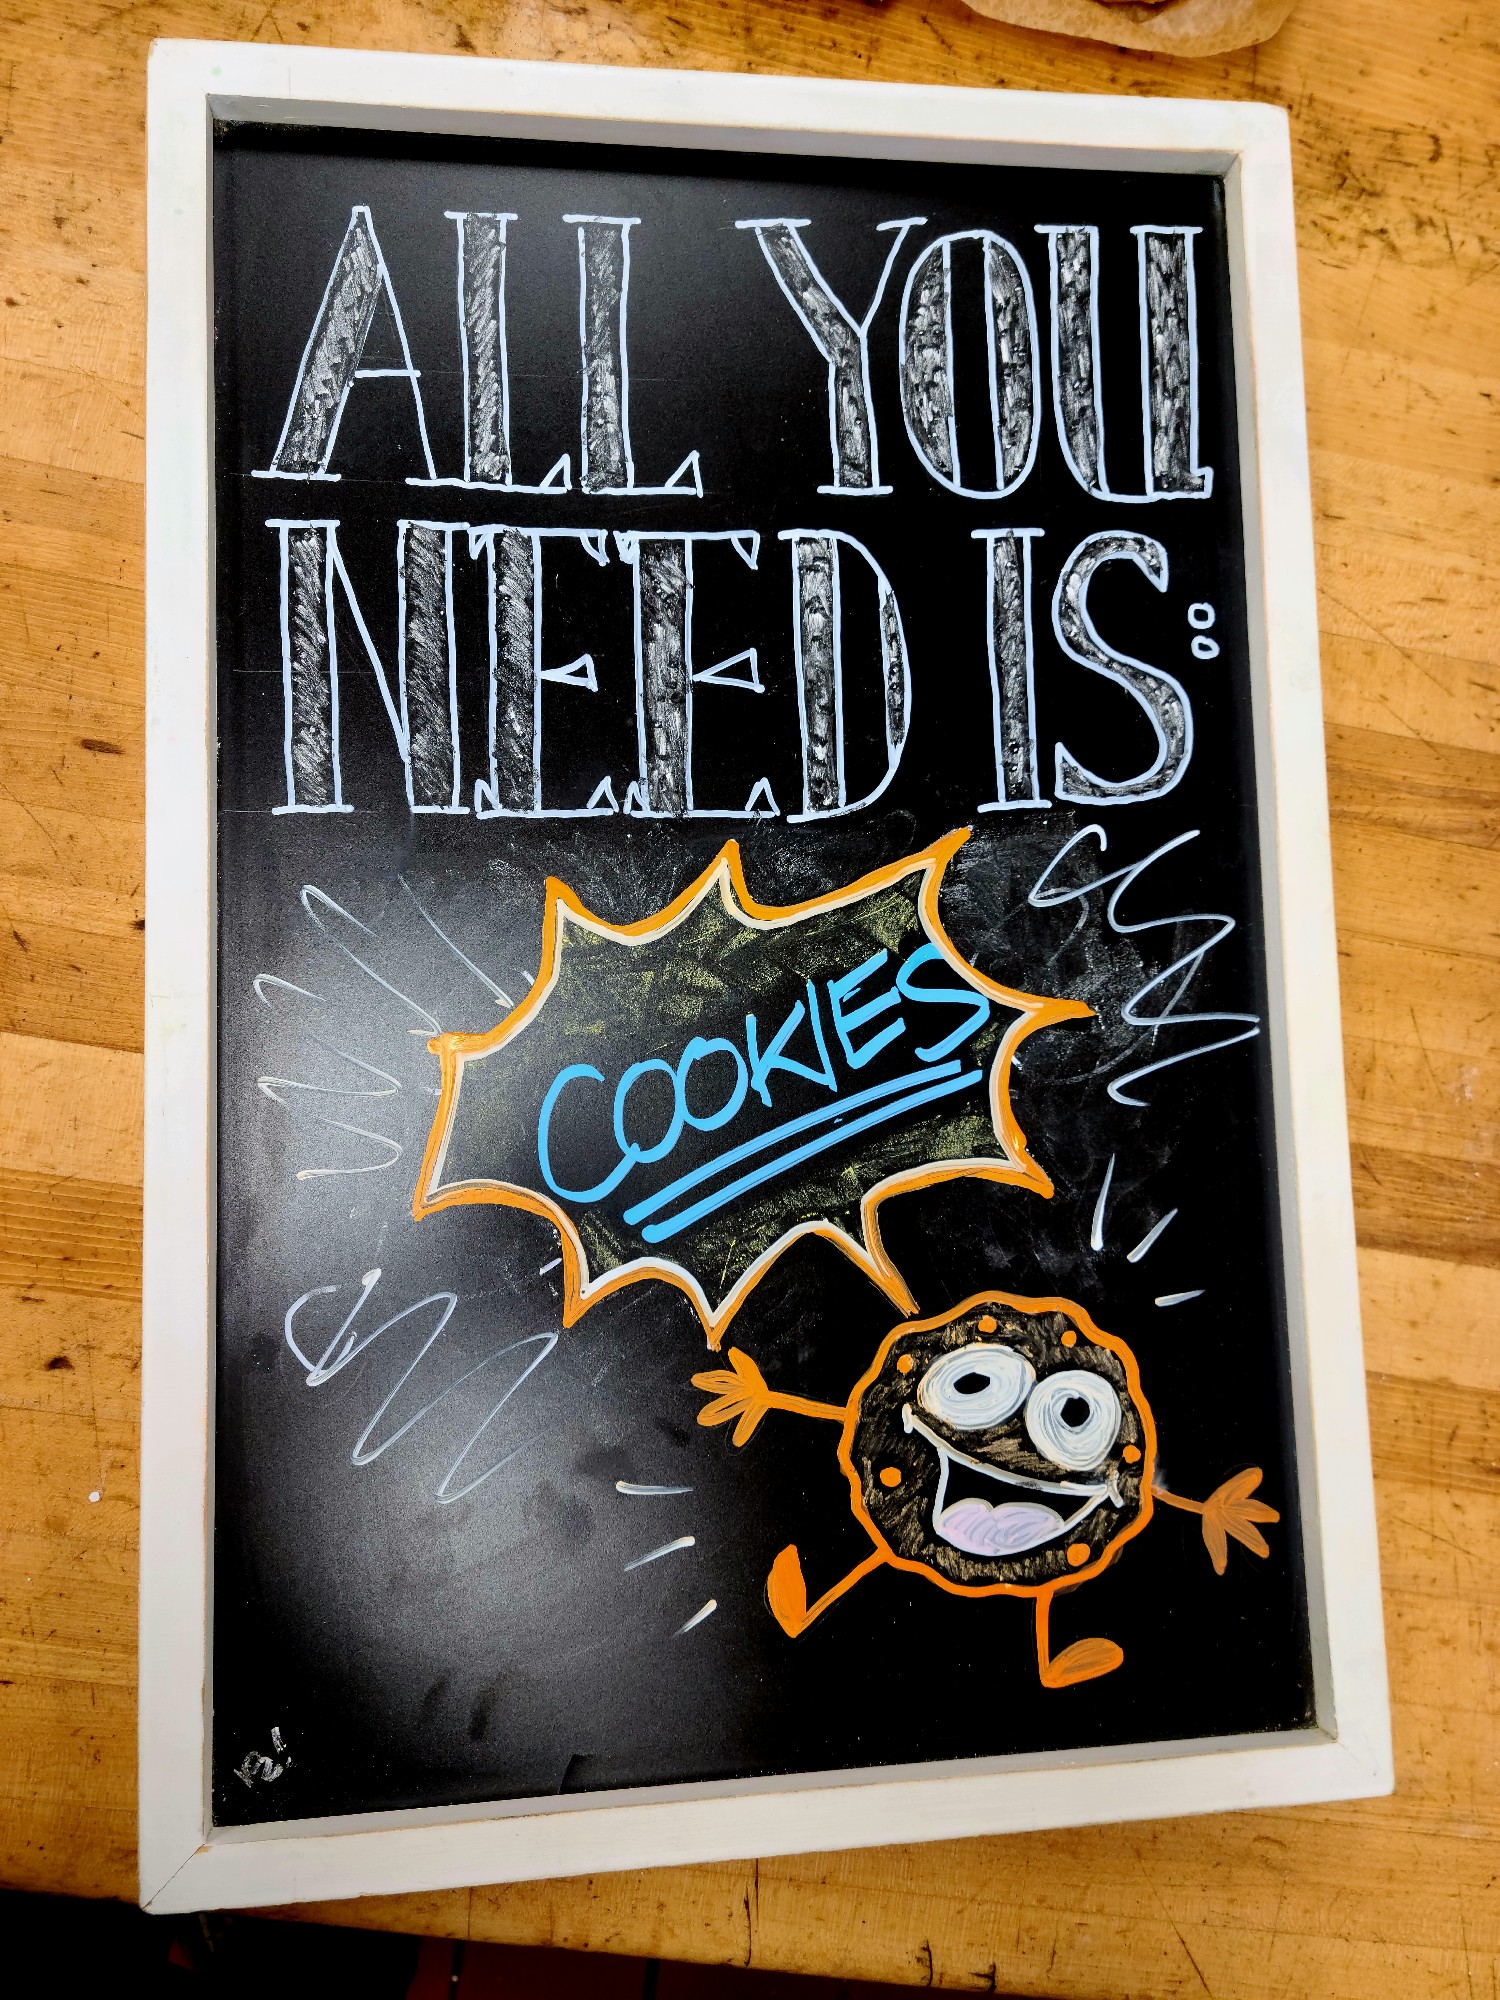 ALL YOU
NEED IS:
COOKIES